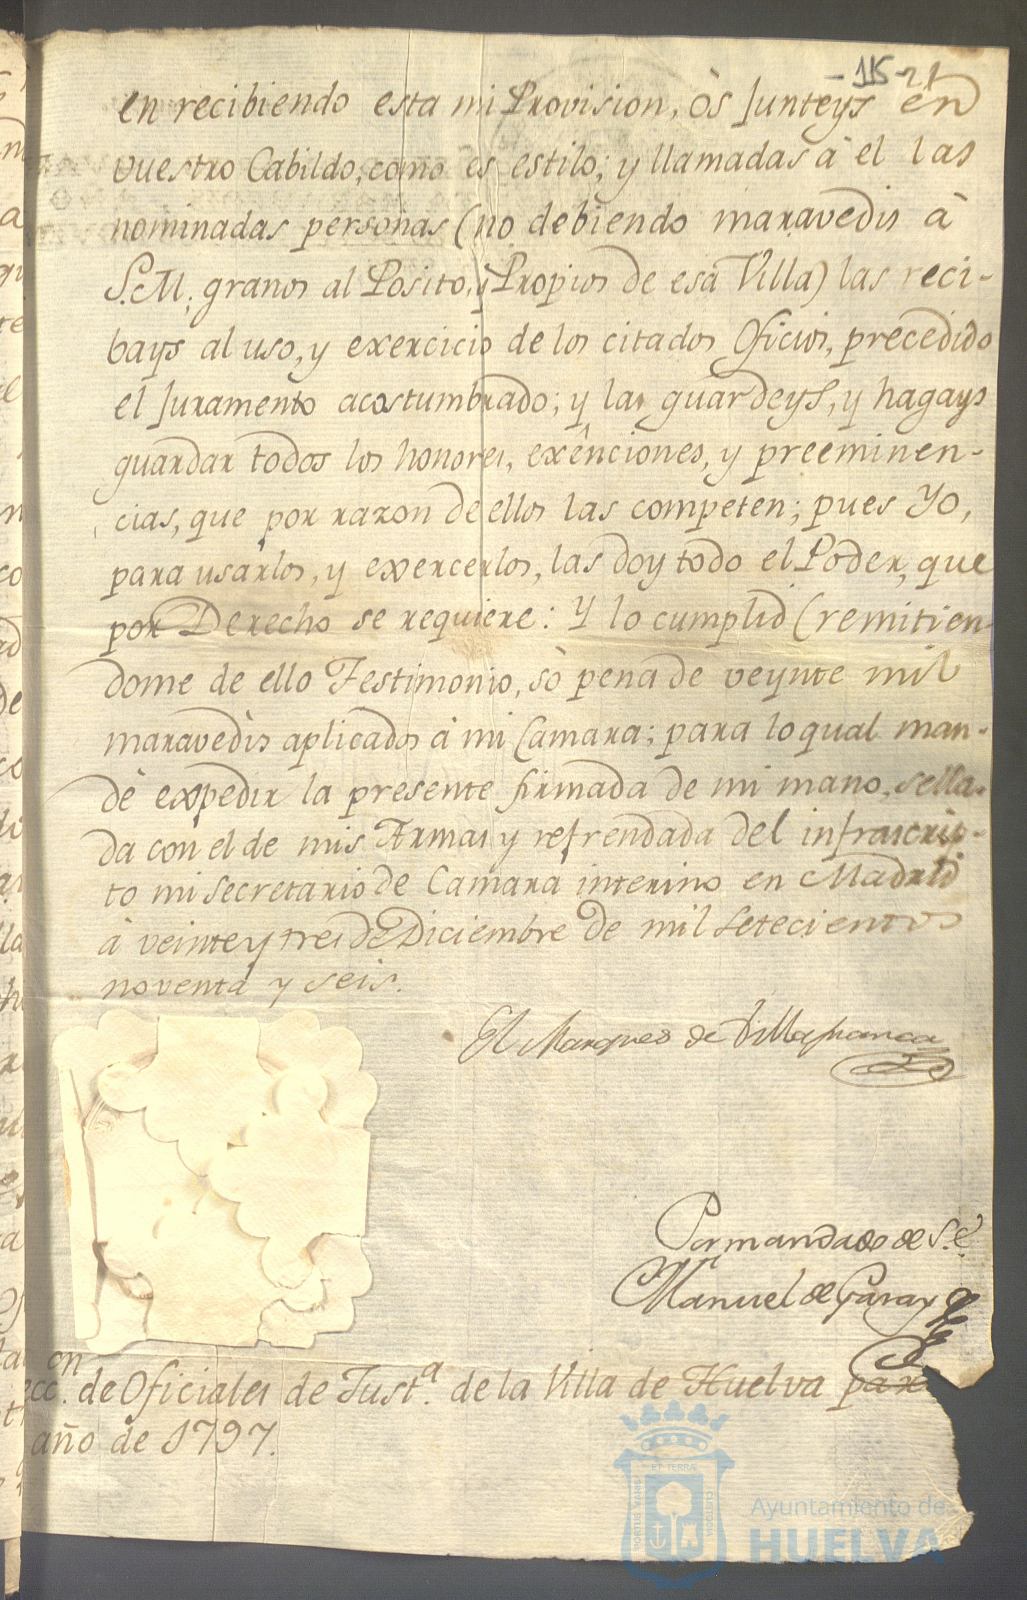 -115-21
en recibiendo esta mi Provision, òs Junteys en
vuestro Cabildo, como es estilo; y llamadas à el las
nominadas personas (no debiendo maravedis à
S.M. granos al Posito, y Propios de esa Villa) las reci-
bays al uso, y exercicio de los citados Oficios, precedido
el Juramento acostumbrado; y las guardeys, y hagays
guardar todos los honores, exênciones, y preeminen-
cias, que por razon de ellos las competen; pues Yo,
para usarlos, y exercerlos, las doy todo el Poder, que
por Derecho se requiere: Y lo cumplid (remitien-
dome de ello Testimonio, sò pena de veynte mil
maravedis aplicados à mi Camara; para lo qual man-
dè expedir la presente firmada de mi mano, sella-
da con el de mis Armas y refrendada del infrascrip-
to mi secretario de Camara interino en Madrid
à veinte y tres de Diciembre de mil Setecientos
noventa y seis.
El Marques de Villafranca
Por mandado de S.E.
Manuel de Garay
ecc.on de Oficiales de Just.a de la Villa de Huelva par
año de 1797.
ET TERRÆ
PORTUS MARIS
CUSTODIA
Ayuntamiento de
HUELVA